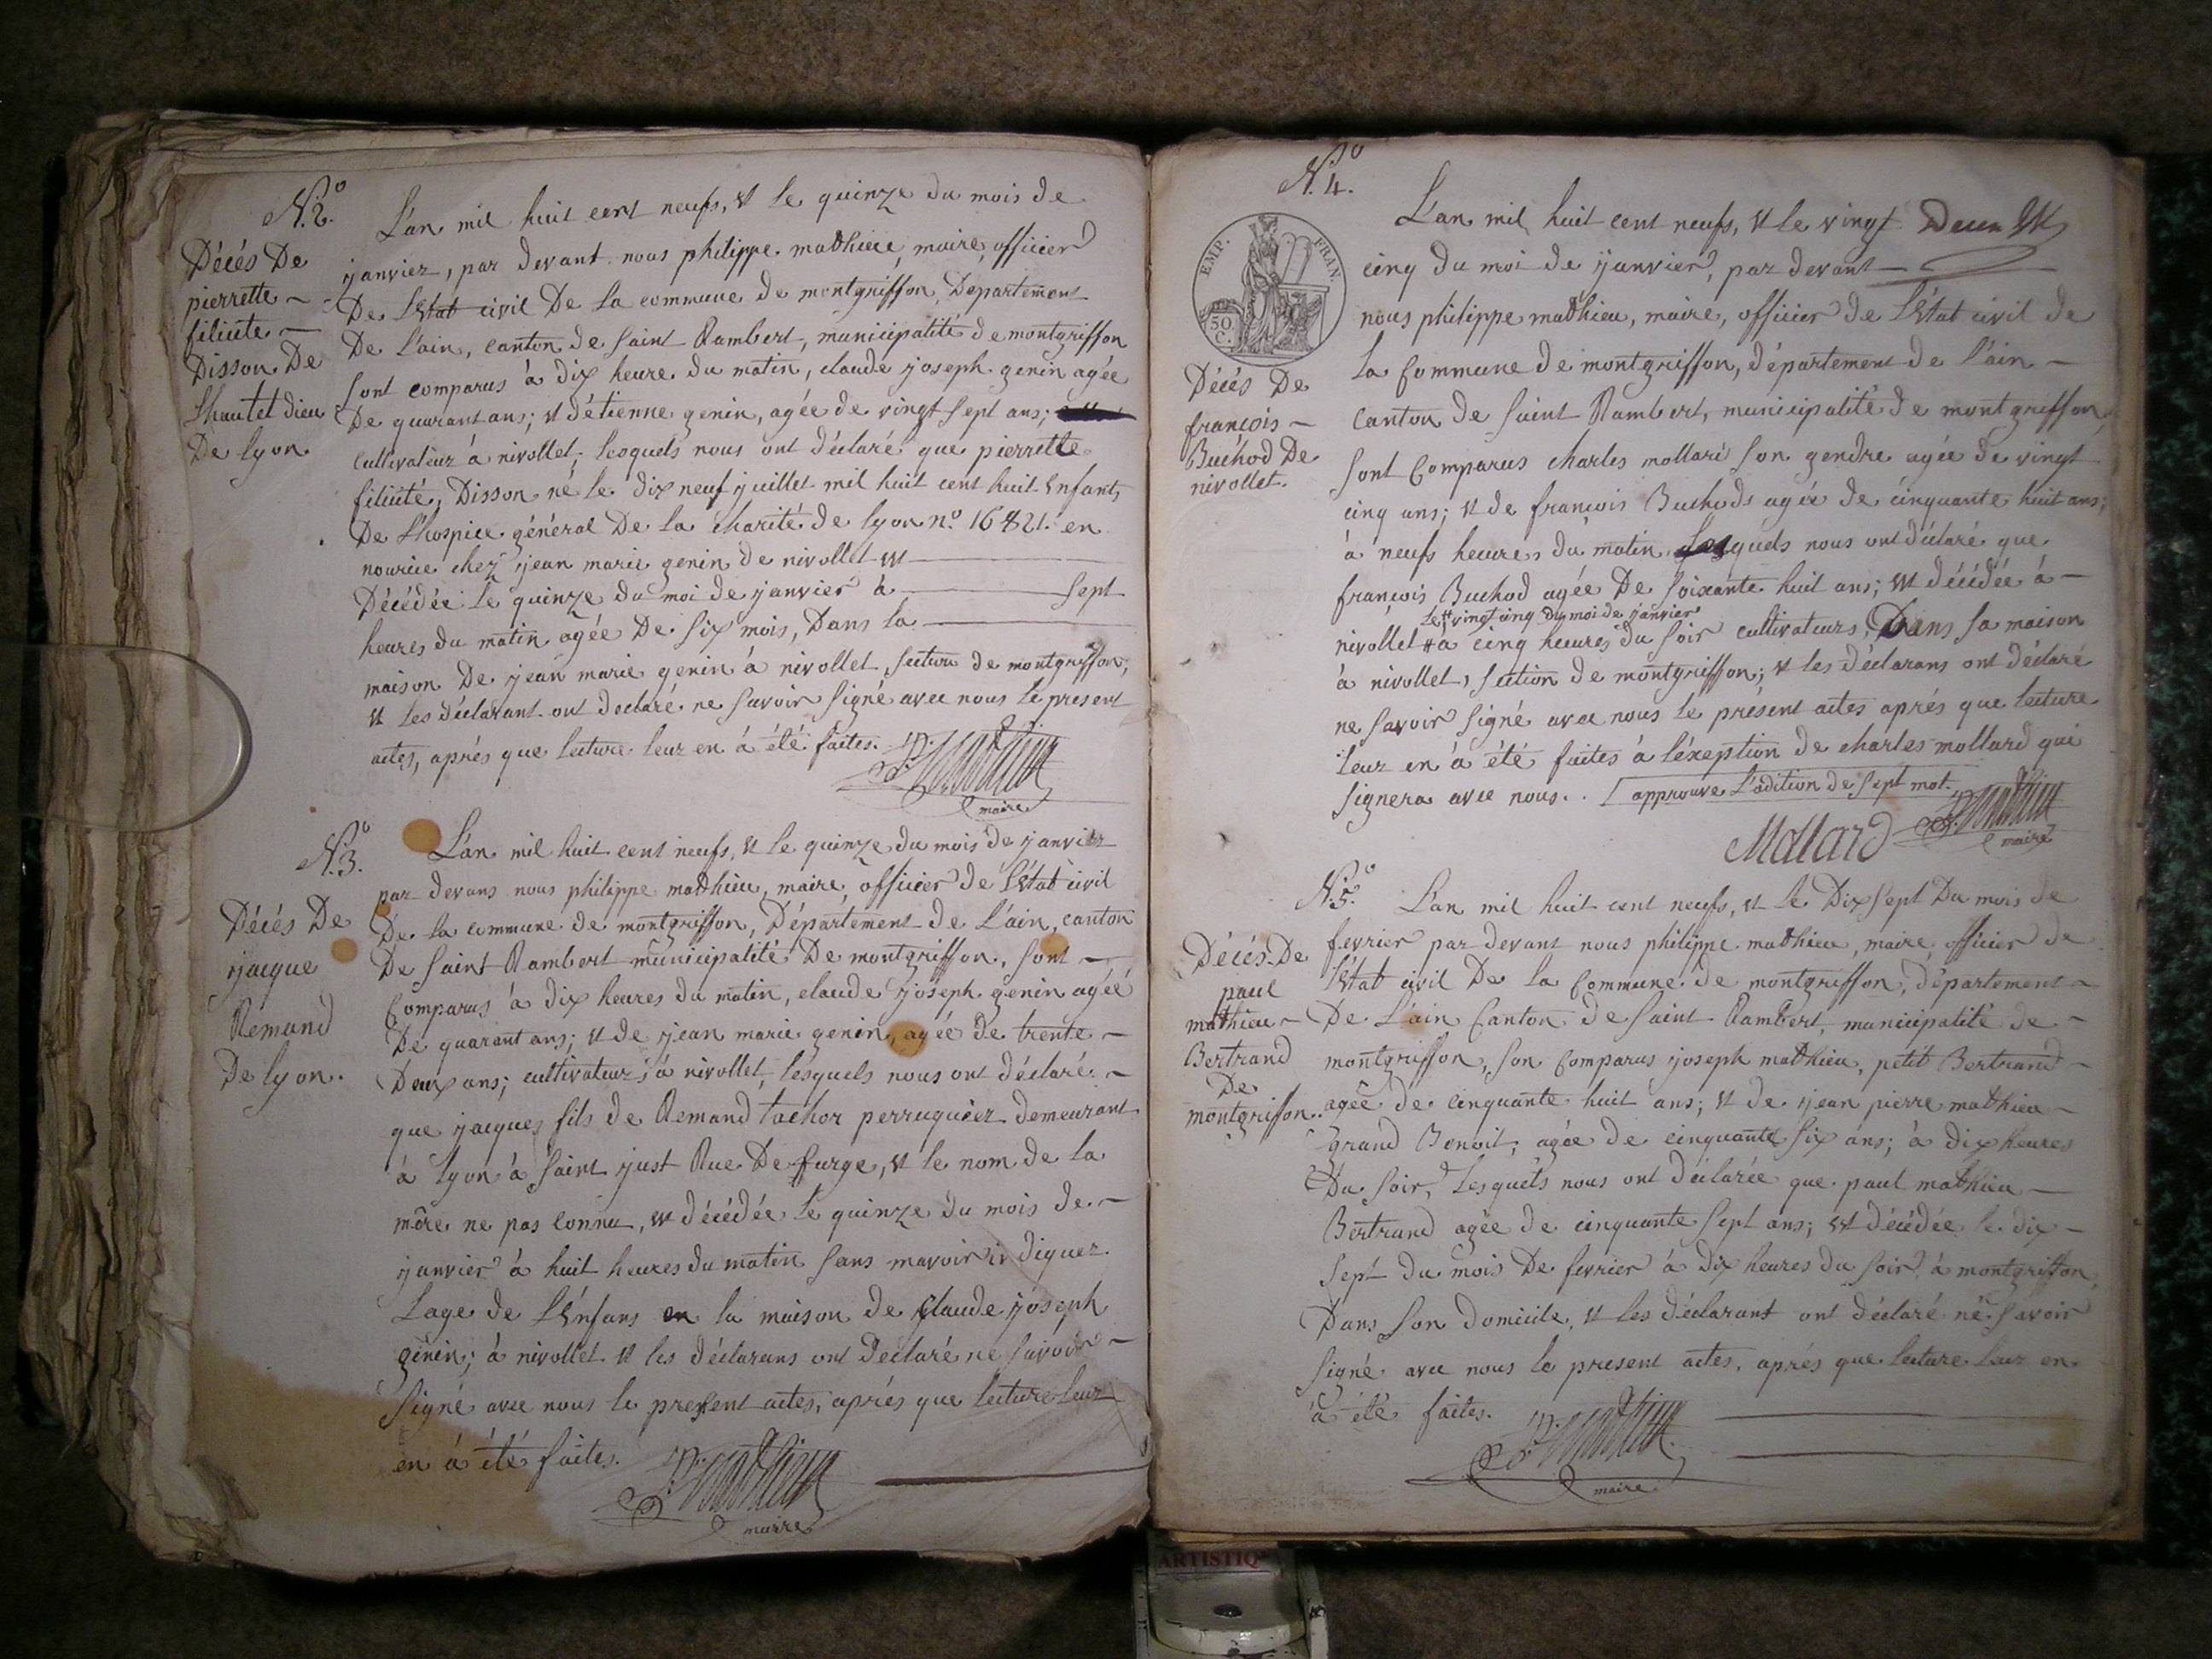 N.º 2.
Décés De
pierrette
filicite
Disson De
Lhautel dieu
De lyon
L'an mil huit cent neufs, et le quinze du mois de
janvier, par devant nous philippe mathieu, maire, officier
De L'Etat civil De la commune de montgriffon, Departement
De L'ain, canton de Saint Rambert, municipalité de montgriffon
Sont comparus à dix heure du matin, claude joseph genin agée
De quarant ans; et d'étienne genin, agée de vingt sept ans;
cultivateur à nivollet; lesquels nous ont déclaré que pierrette
filicité, Disson né le dix neuf juillet mil huit cent huit Enfant,
De L'hospice général De la charité de lyon nº 16821. en
nourice chez jean marie genin de nivollet et
Décédée le quinze du moi de janvier à sept
heures du matin agée De six mois, Dans la
maison De jean marie genin à nivollet section de montgriffon;
et les déclarant ont declaré ne savoir signé avec nous le present
actes, aprés que lecture leur en à été faites.
maire
N.º 3.
Décés De
jacque
Remand
De lyon.
L'an mil huit cent neufs, et le quinze du mois de janvier
par devans nous philippe mathieu, maire, officier de L'Etat civil
De la commune de montgriffon, Département de L'ain, canton
De Saint Rambert municipalité De montgriffon, sont
Comparus à dix heures du matin, claude joseph genin agéé
De quarant ans; et de jean marie genin, agée de trente
Deux ans; cultivateurs à nivollet, lesquels nous ont déclaré
que jacques fils de Remand tachor perruquier demeurant
à lyon à Saint just Rue De furge, et le nom de la
mére ne pas connu, et décédée le quinze du mois de
janvier à huit heures du matin sans mavoir indiquer
Lage de L'Enfans en la maison de Claude joseph
genin; à nivollet et les déclarans ont Déclaré ne savoir
Signé avec nous le present actes, aprés que lecture leur
en à été faites.
maire
N.º 4.
EMP. FRAN.
50 C.
Décés De
françois
Buchod De
nivollet.
L'an mil huit cent neufs, et le vingt
cinq du moi de janvier, par devant
nous philippe mathieu, maire, officier de L'Etat civil de
la Commune de montgriffon, département de l'ain
canton de Saint Rambert, municipalité de montgriffon,
sont Comparus charles mollard son gendre agée de vingt
cinq ans; et de françois Buchods agée de cinquante huit ans;
à neufs heures du matin Lesquels nous ont déclaré que
françois Buchod agée De soixante huit ans; et décédée à
Le vingt cinq du moi de janvier
nivollet # à cinq heures du soir cultivateurs, Dans sa maison
à nivollet, section de montgriffon; et les déclarans ont déclaré
ne savoir signé avec nous le présent actes aprés que lecture
leur en à été faites à l'éxeption de charles mollard qui
signera avec nous. approuve L'adition de sept mot.
Mollard
maire
N.º 5.
Décés De
paul
mathieu
Bertrand
De
montgriffon.
L'an mil huit cent neufs, et le Dix sept Du mois de
fevrier par devant nous philippe mathieu, maire officier de
L'Etat civil De la Commune de montgriffon, département
De L'ain Canton de Saint Rambert, municipalité de
montgriffon, son Comparus joseph mathieu, petit Bertrand
agée de cinquante huit ans; et de jean pierre mathieu
grand Benoit; agée de cinquante six ans; à dix heures
Du soir, Lesquels nous ont déclarée que paul mathieu
Bertrand agée de cinquante sept ans; et décédée le dix
sept du mois De fevrier à dix heures du soir à montgriffon,
Dans son domicile, et les déclarant ont déclaré né savoir
signé avec nous le present actes, aprés que lecture leur en
à été faites.
maire
ARTISTIQ